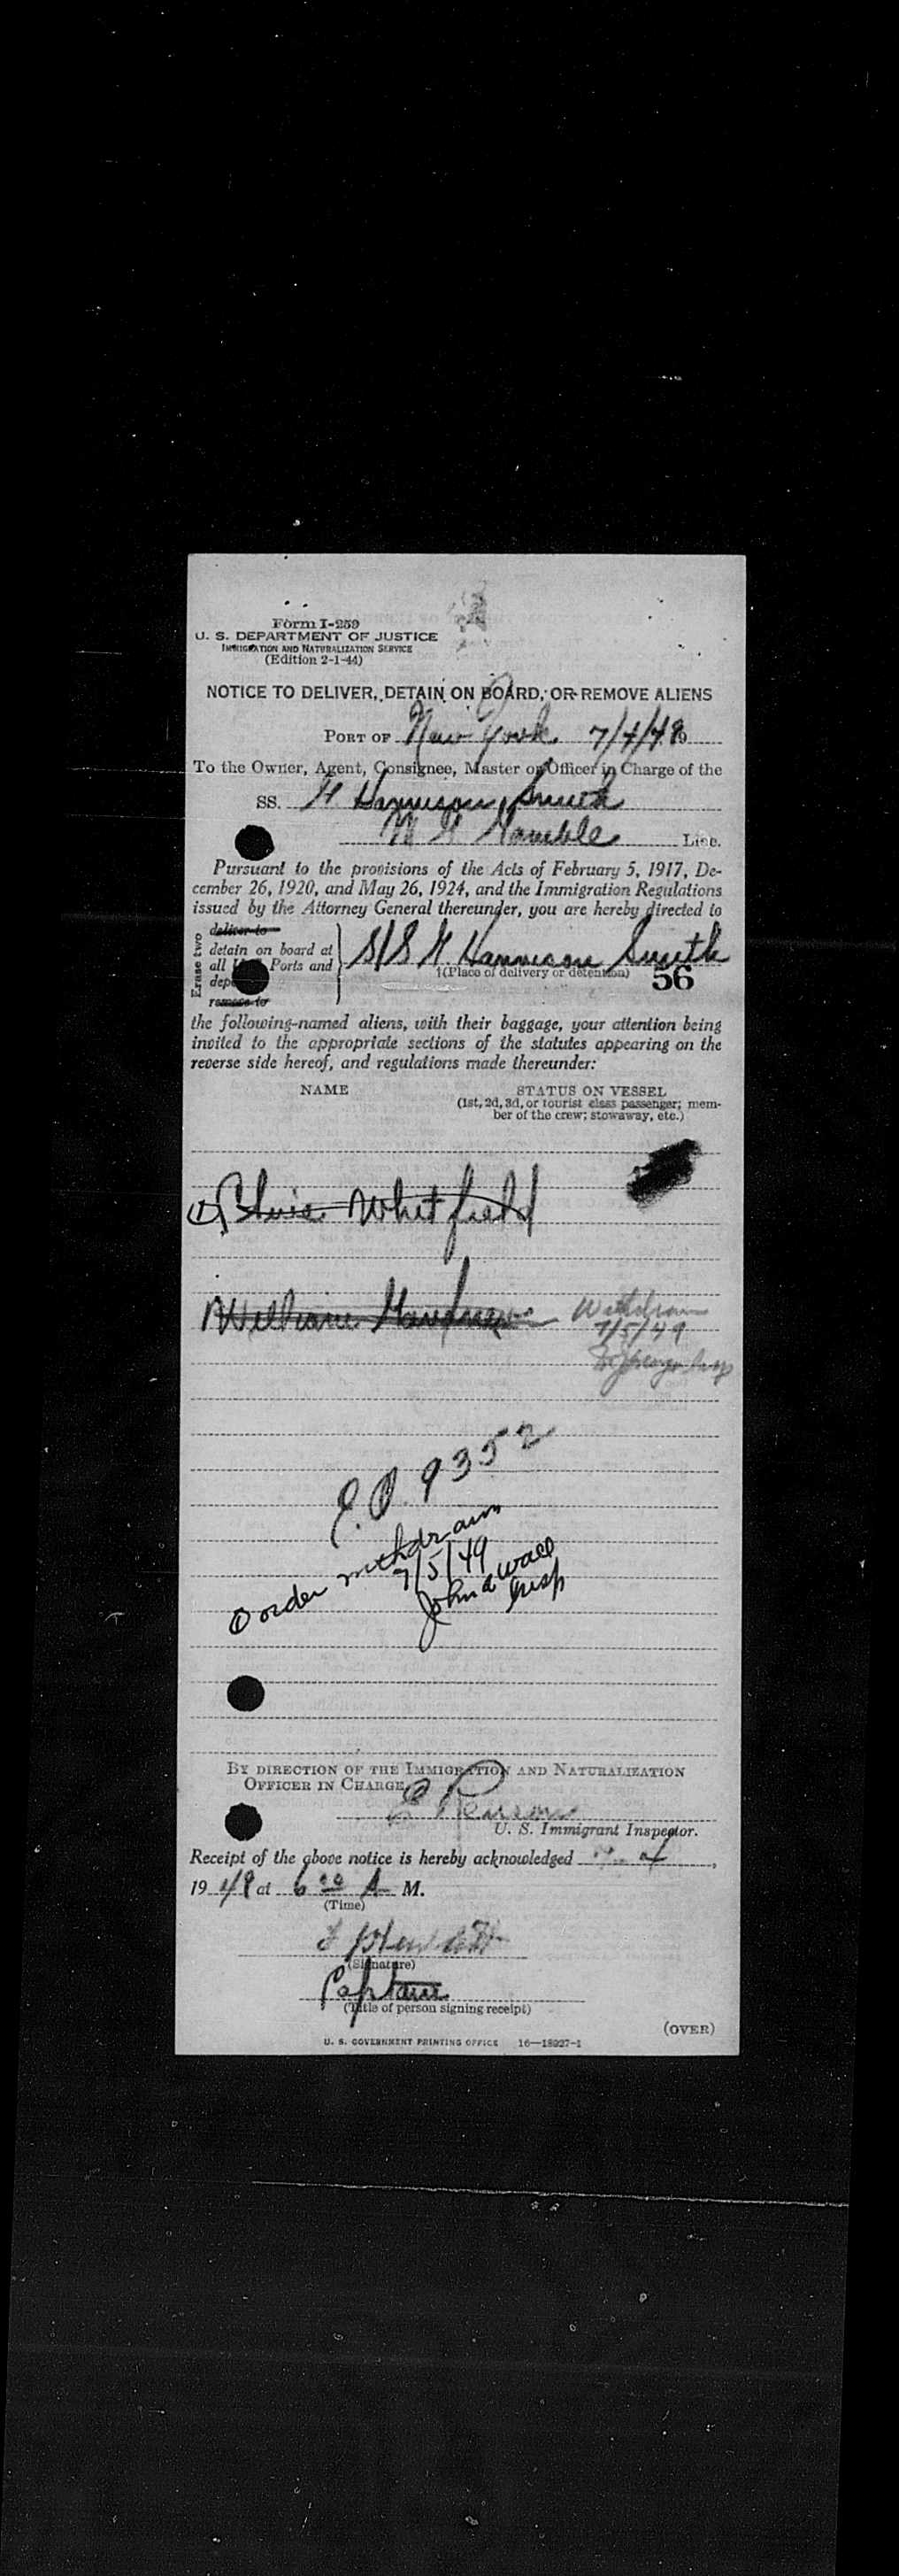 Form I-259
U. S. DEPARTMENT OF JUSTICE
IMMIGRATION AND NATURALIZATION SERVICE
(Edition 2-1-44)
NOTICE TO DELIVER, DETAIN ON BOARD, OR REMOVE ALIENS
PORT OF New York 7/4/49
To the Owner, Agent, Consignee, Master or Officer in Charge of the
SS. H Harrison Smith
Line.
Pursuant to the provisions of the Acts of February 5, 1917, De-
cember 26, 1920, and May 26, 1924, and the Immigration Regulations
issued by the Attorney General thereunder, you are hereby directed to
Erase two
deliver to
detain on board at
all Ports and
remove to
S/S H Harrison Smith
(Place of delivery or detention)
56
the following-named aliens, with their baggage, your attention being
invited to the appropriate sections of the statutes appearing on the
reverse side hereof, and regulations made thereunder:
NAME STATUS ON VESSEL
(1st, 2d, 3d, or tourist class passenger; mem-
ber of the crew; stowaway, etc.)
Whitfield
William Withdrawn
7/5/49
Insp
E.O. 9352
Order withdrawn
7/5/49
John a Wall
Insp
BY DIRECTION OF THE IMMIGRATION AND NATURALIZATION
OFFICER IN CHARGE
U. S. Immigrant Inspector.
Receipt of the above notice is hereby acknowledged 4,
19 49 at 6 00 A M.
(Time)
(Signature)
Captain
(Title of person signing receipt)
(OVER)
U. S. GOVERNMENT PRINTING OFFICE 16—18927-1